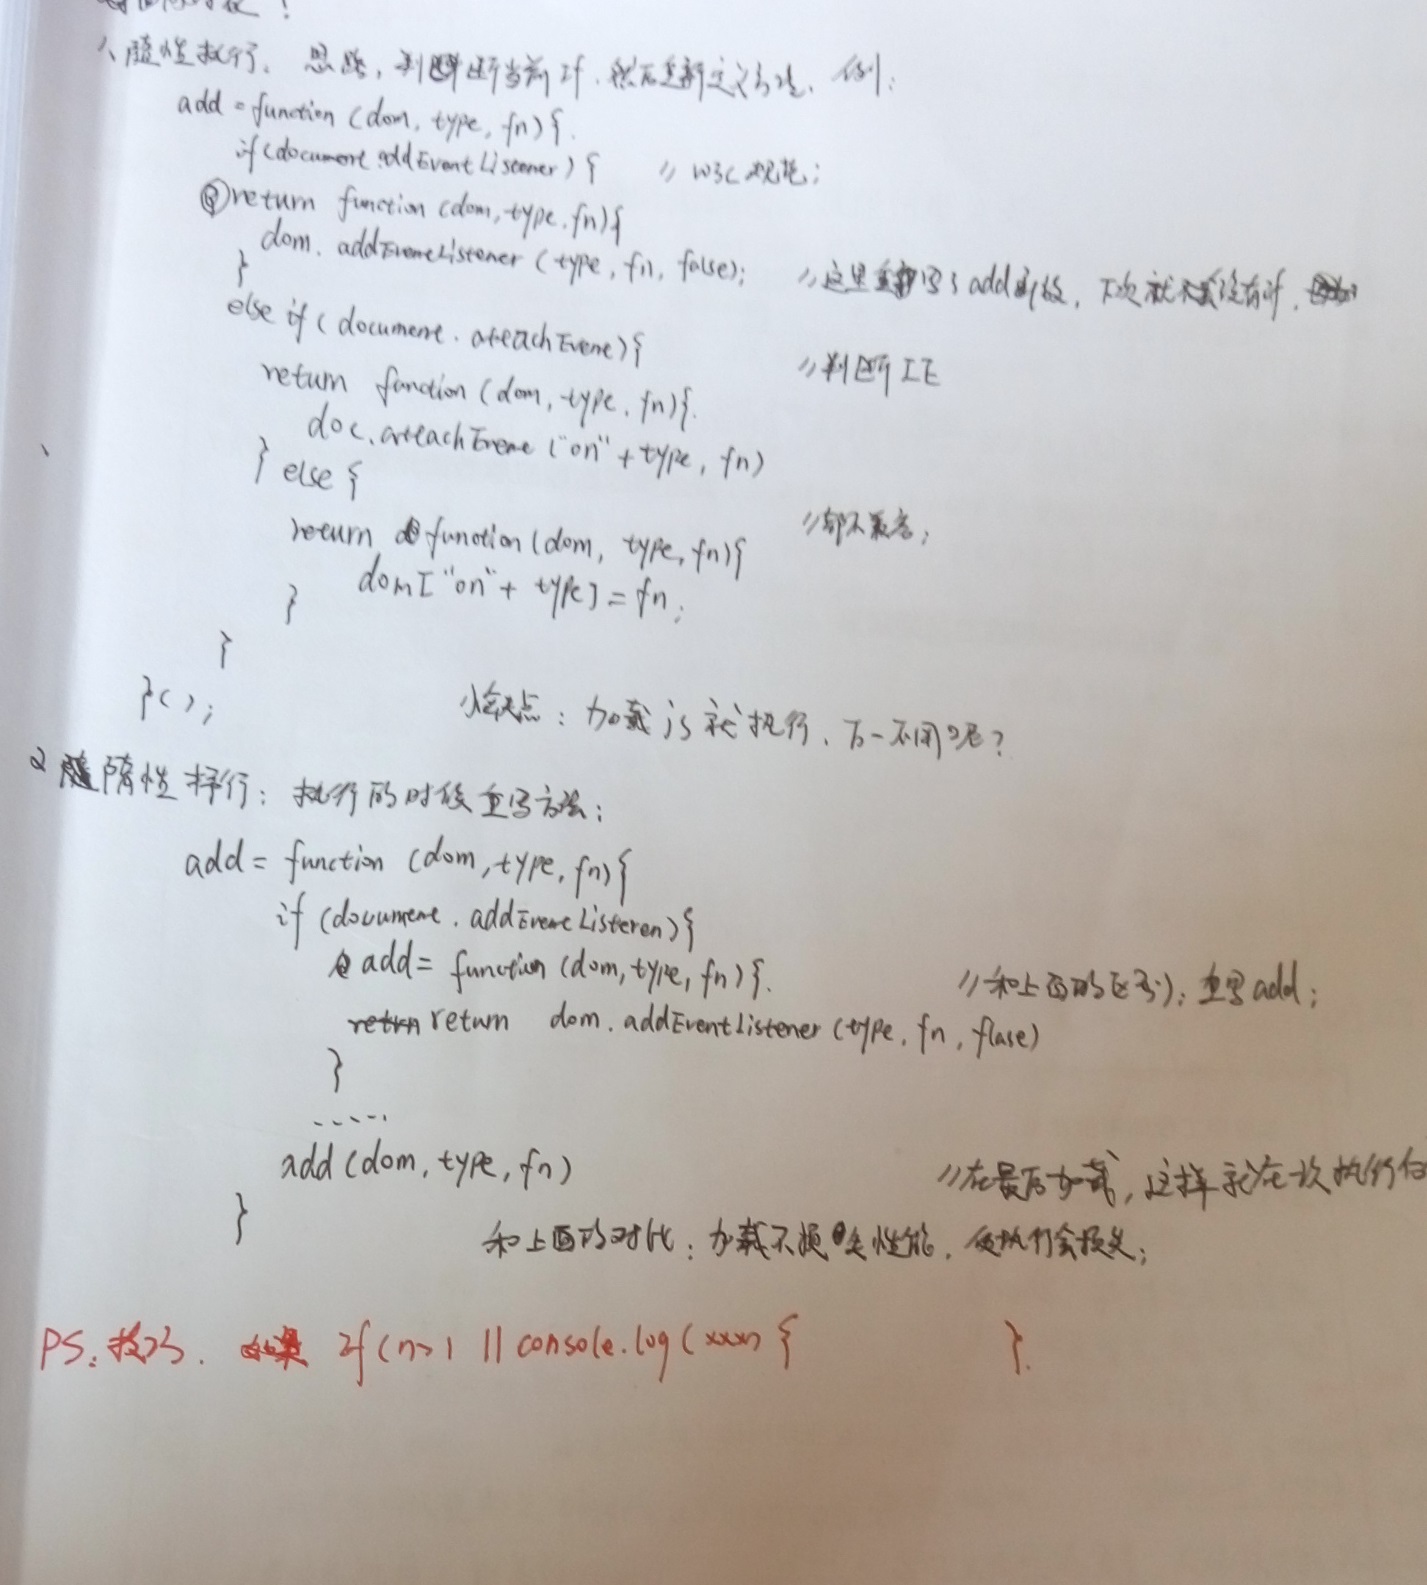 1、随性执行. 思路, 判断当前if, 然后重新定义方法. 例:
add = function (dom, type, fn) {.
if (document.addEventListener) { // W3C 规范;
return function (dom, type, fn) {
dom. addEventListener (type, fn, false); // 这里重新写了 add 函数, 下次就没有if.
}
else if ( document. atteachEvent) {
return function (dom, type, fn) {. // 判断 IE
doc. atteachEvent ("on" + type, fn)
} else {
return function (dom, type, fn) { // 都不兼容;
dom ["on" + type] = fn;
}
}
}( ); 缺点: 加载 js 就执行, 万一不用呢?
2 隋性执行: 执行的时候重写方法;
add = function (dom, type, fn) {
if (document. addEventListeren) {
add = function (dom, type, fn) {. // 和上面的区别: 重写 add;
return dom. addEventListener (type, fn, flase)
}
.....
add (dom, type, fn) // 在最后加载, 这样就在次执行
}
和上面的对比: 加载不损失性能, 但执行会损失;
PS: 技巧. if (n>1 || console.log (xxx) { }.